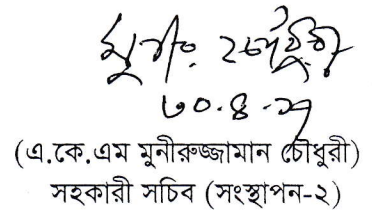 ৩০.৪.১৭
(এ.কে.এম মুনীরুজ্জামান চৌধুরী)
সহকারী সচিব (সংস্থাপন-২)